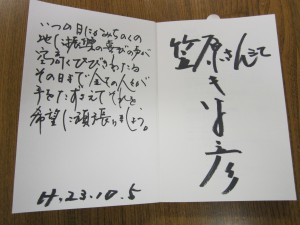 いつの日にかみちのくの
地に復興の喜びの声が
空高くひびきわたる
その日まで全ての人々が
手をたずさえてそれを
希望に頑張りましょう。
H.23.10.5
笠原さん江
きよ彦